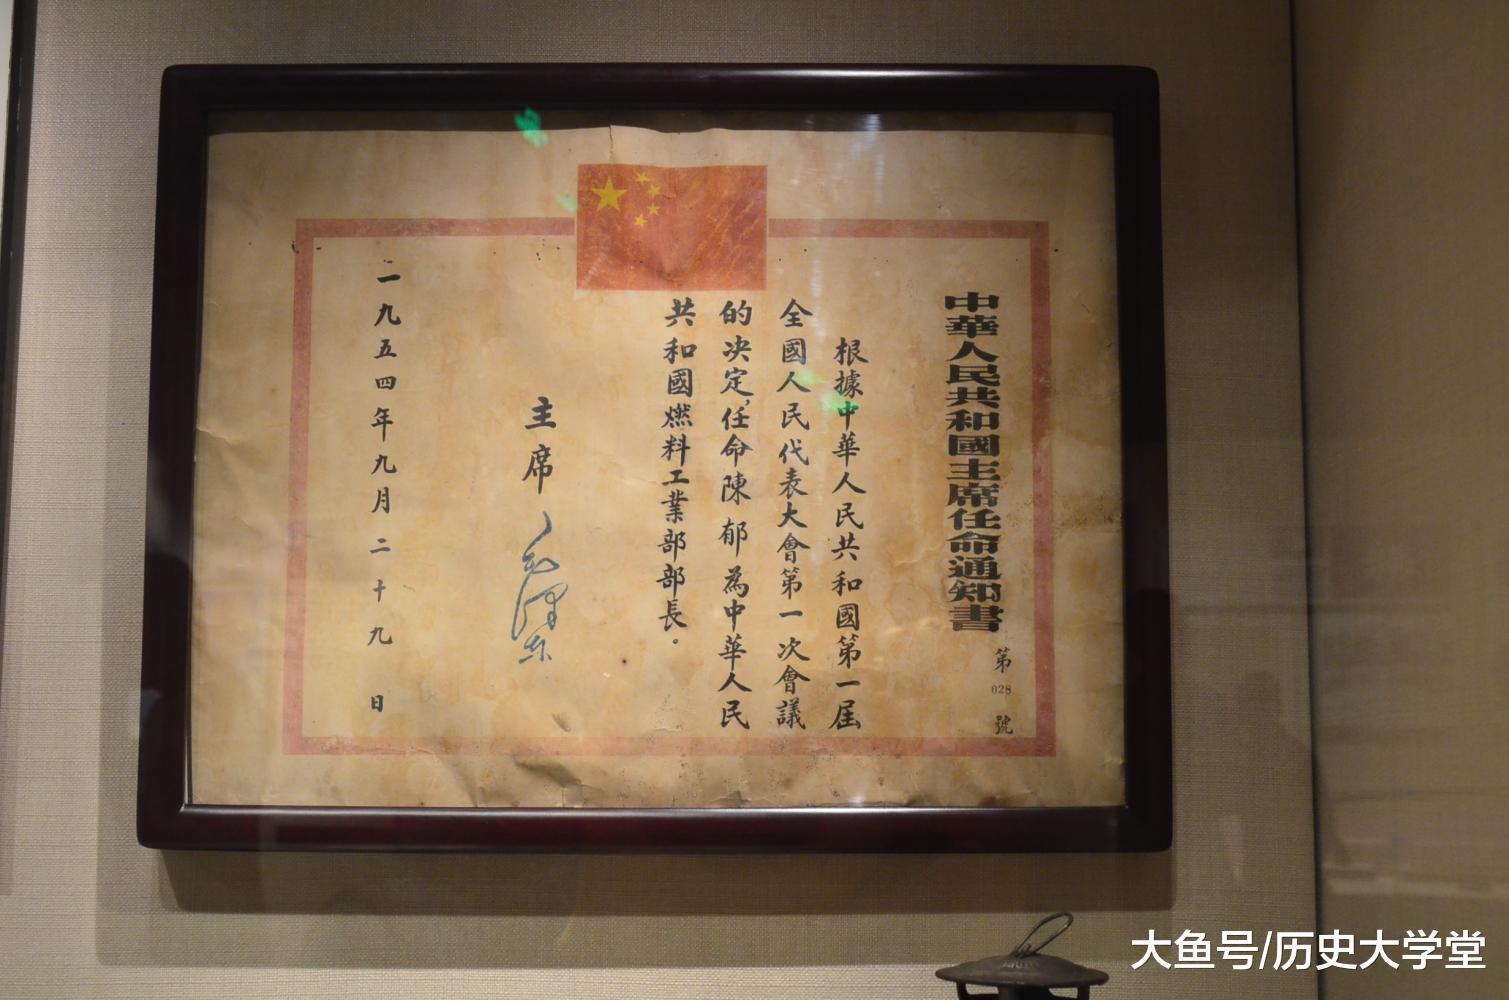 中華人民共和國主席任命通知書
第028號
根據中華人民共和國第一屆
全國人民代表大會第一次會議
的決定,任命陳郁為中華人民
共和國燃料工業部部長。
主席 毛澤東
一九五四年九月二十九日
大鱼号/历史大学堂